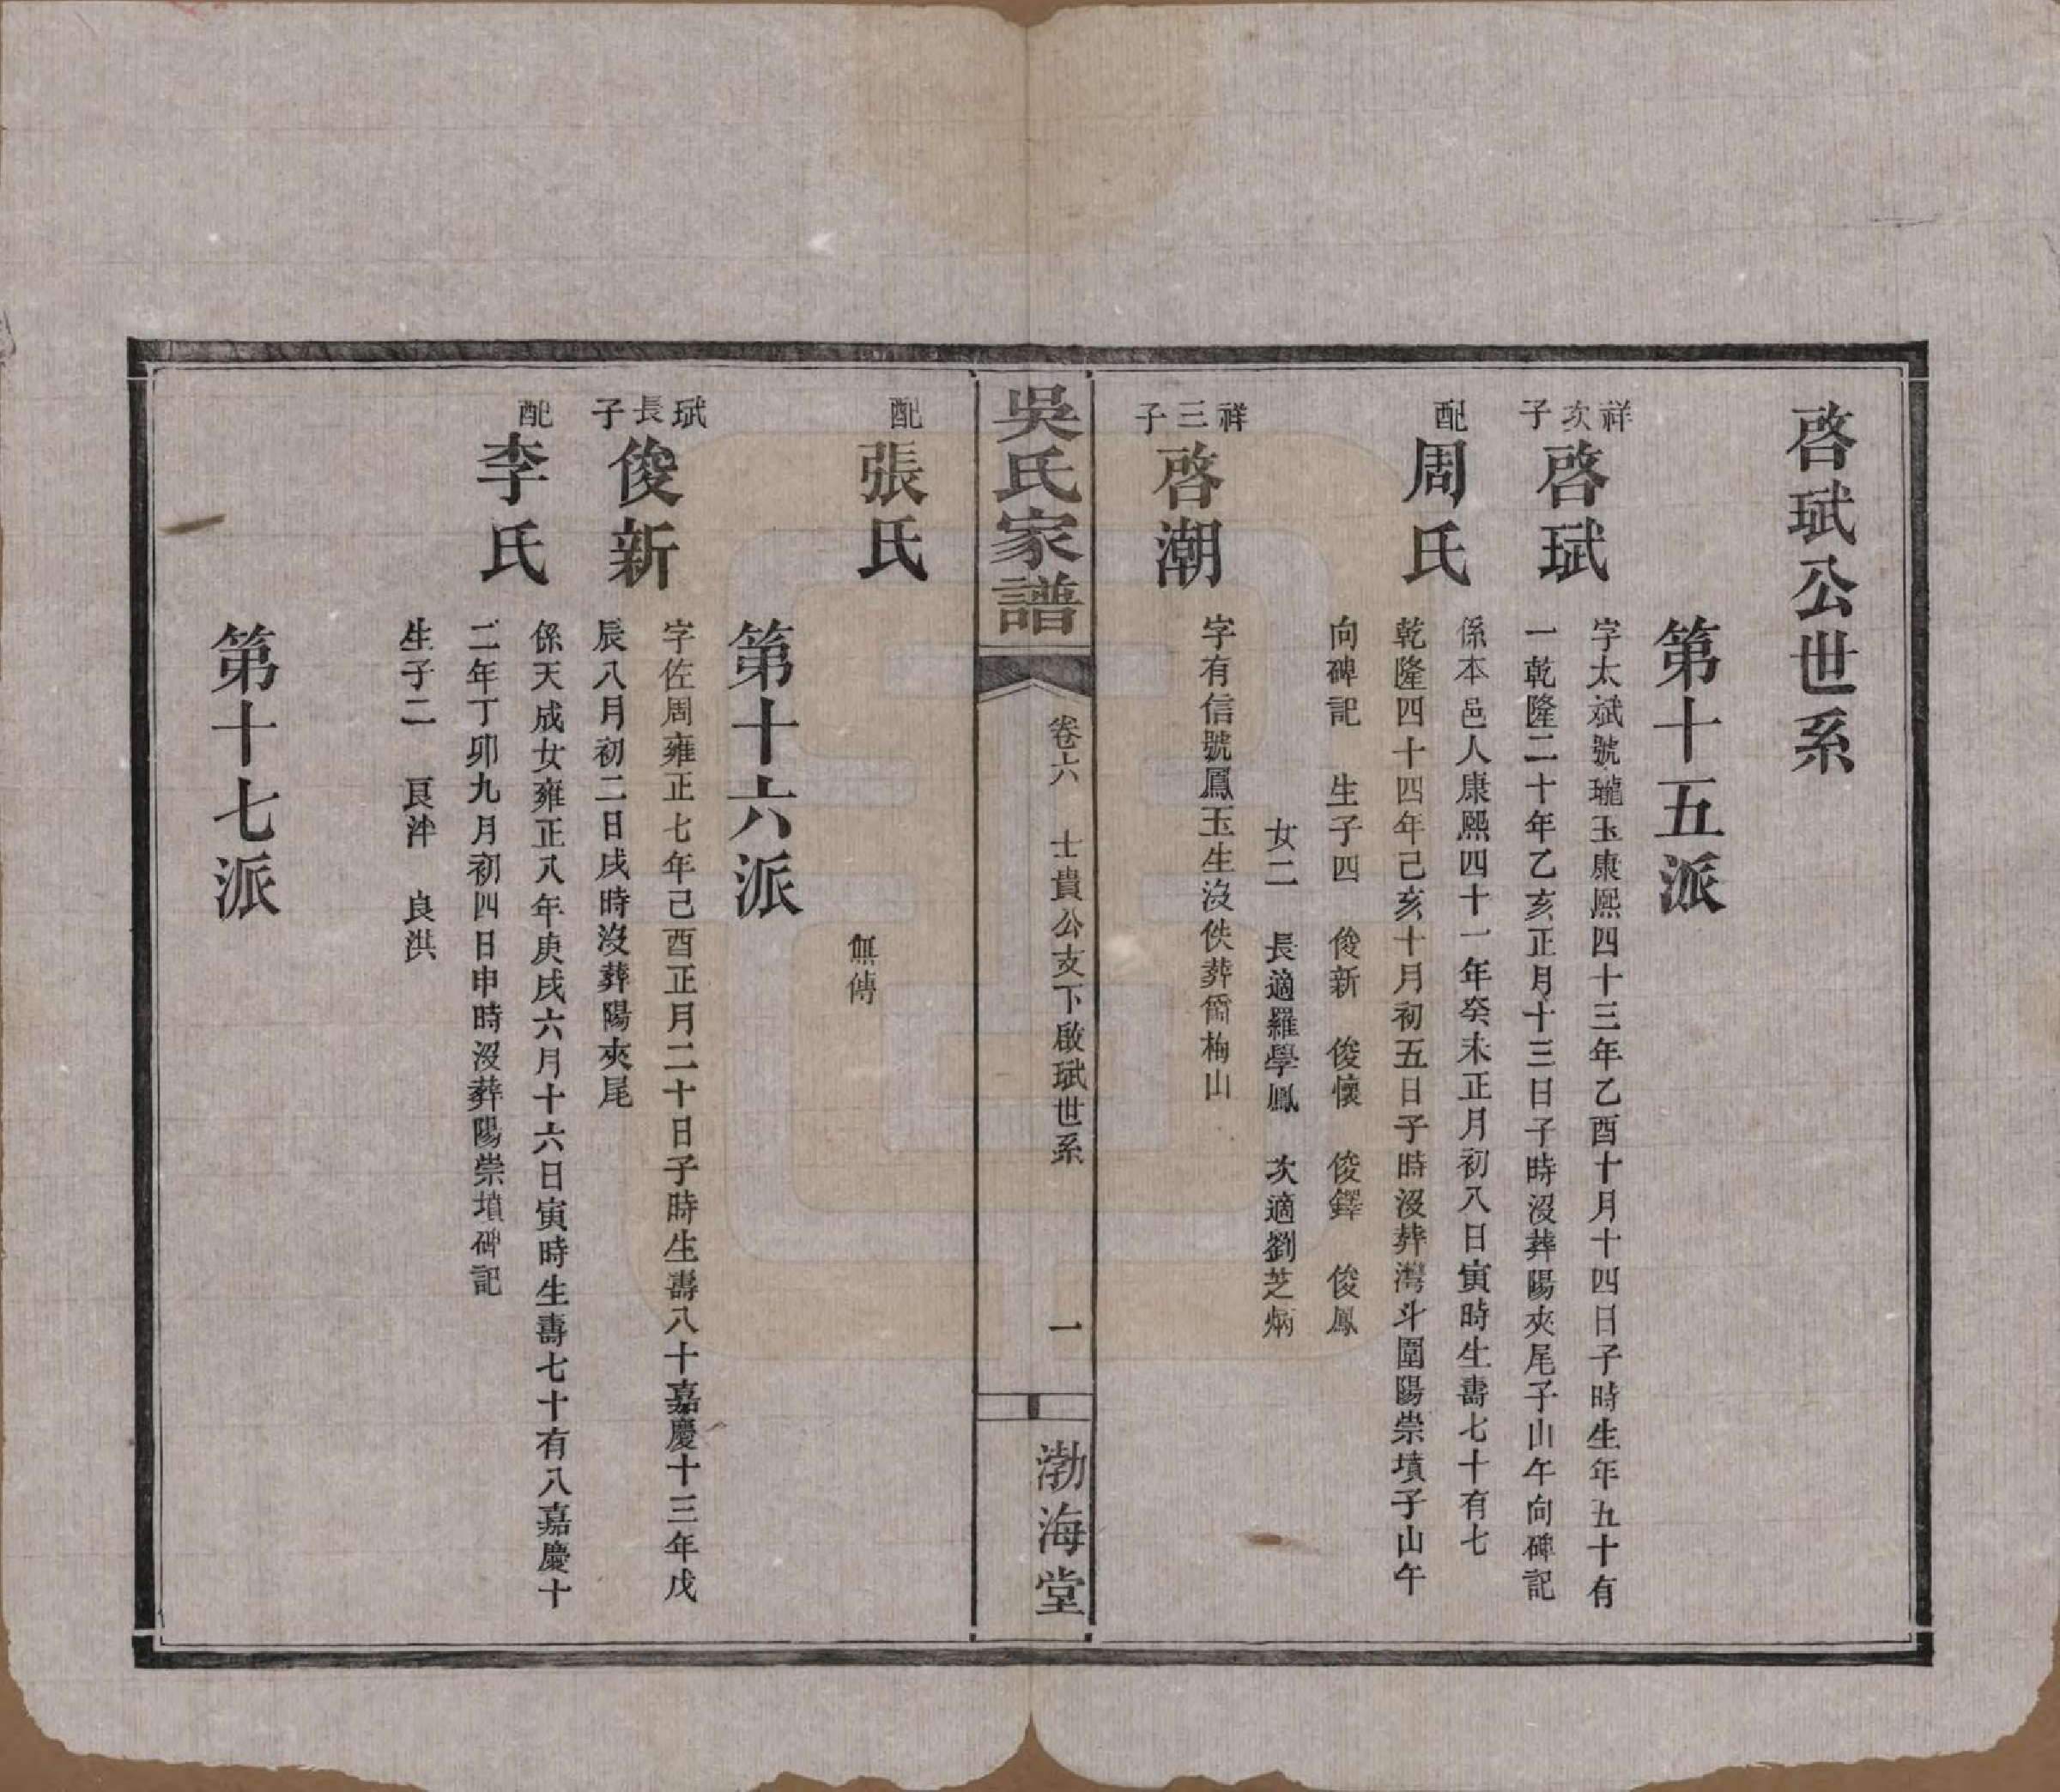 啓珷公世系
第十五派
祥次子
啓珷
字太斌號瓏玉康熙四十三年乙酉十月十四日子時生年五十有
一乾隆二十年乙亥正月十三日子時沒葬陽夾尾子山午向碑記
配
周氏
係本邑人康熙四十一年癸未正月初八日寅時生壽七十有七
乾隆四十四年己亥十月初五日子時沒葬灣斗圍陽崇墳子山午
向碑記 生子四 俊新 俊懷 俊鐸 俊鳳
女二 長適羅學鳳 次適劉芝炳
祥三子
啓潮
字有信號鳳玉生沒佚葬簡梅山
吳氏家譜
卷六 士貴公支下啟珷世系
一
渤海堂
配
張氏
無傳
第十六派
珷長子
俊新
字佐周雍正七年己酉正月二十日子時生壽八十嘉慶十三年戊
辰八月初二日戌時沒葬陽夾尾
配
李氏
係天成女雍正八年庚戌六月十六日寅時生壽七十有八嘉慶十
二年丁卯九月初四日申時沒葬陽崇墳碑記
生子二 良泮 良洪
第十七派